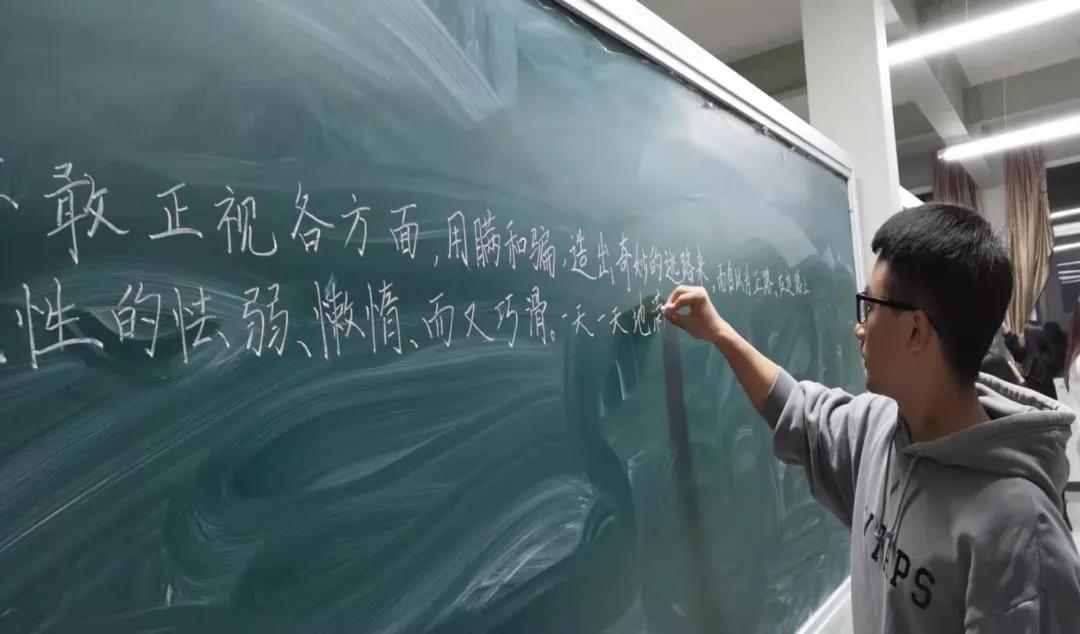 敢正视各方面,用瞒和骗,造出奇妙的逃路来,而自以为正路
性的怯弱、懒惰、而又巧滑。一天一天地